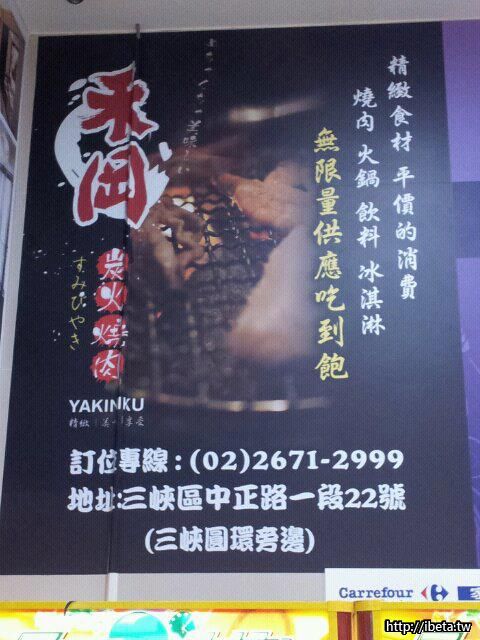 精緻食材 平價的消費
燒肉 火鍋 飲料 冰淇淋
無限量供應吃到飽
禾岡
炭火燒肉
すみびやき
YAKINIKU
訂位專線:(02)2671-2999
地址:三峽區中正路一段22號
(三峽圓環旁邊)
Carrefour
http://ibeta.tw